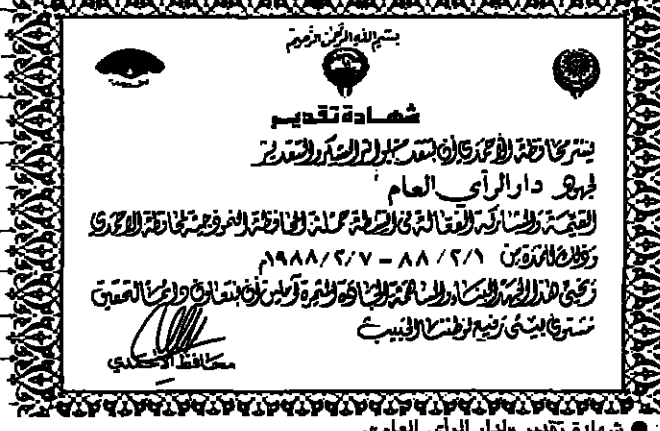 بسم الله الرحمن الرحيم
شهادة تقدير
يسر محافظة الأحمدي أن تتقدم بوافر الشكر والتقدير
لجهود دار الرأي العام
القيمة والمشاركة الفعالة في أنشطة حملة المحافظة النموذجية لمحافظة الأحمدي
وذلك للمدة من ٨٨/٢/١ - ١٩٨٨/٢/٧م
هذا الجهد البناء والمساهمة الجادة المثمرة آملين أن نتعاون دائما لتحقيق
مستوى بيئي رفيع لوطننا الحبيب
محافظ الأحمدي
● شهادة تقدير «لدار الرأي العام»